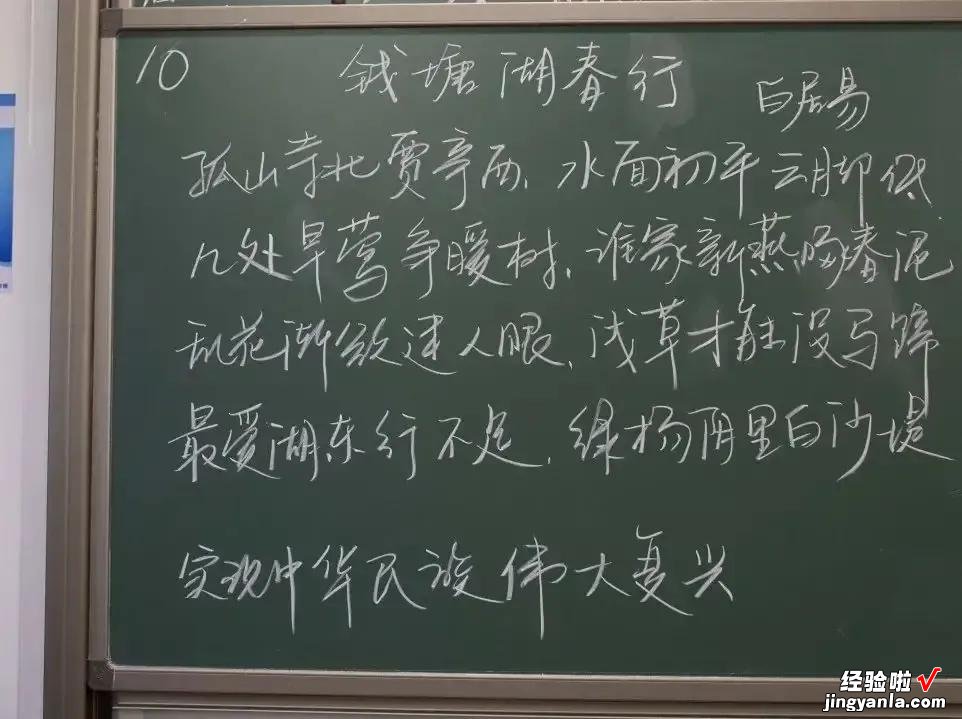 10
钱塘湖春行
白居易
孤山寺北贾亭西、水面初平云脚低
几处早莺争暖树、谁家新燕啄春泥
乱花渐欲迷人眼、浅草才能没马蹄
最爱湖东行不足、绿杨阴里白沙堤
实现中华民族伟大复兴
经验啦√
jingyanla.com